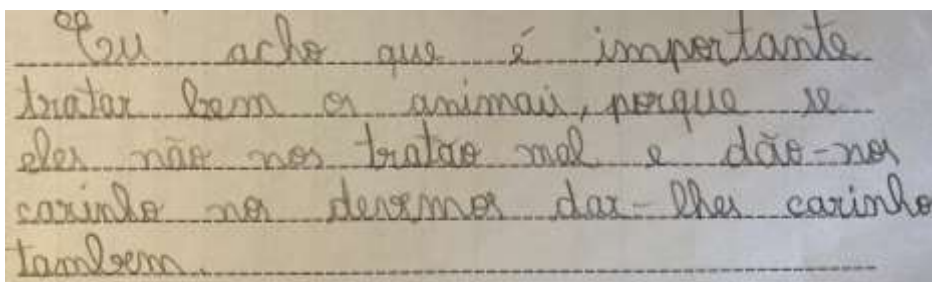 Eu acho que é importante
tratar bem os animais, porque se
eles não nos tratão mal e dão-nos
carinho nos devemos dar-lhes carinho
tambem.